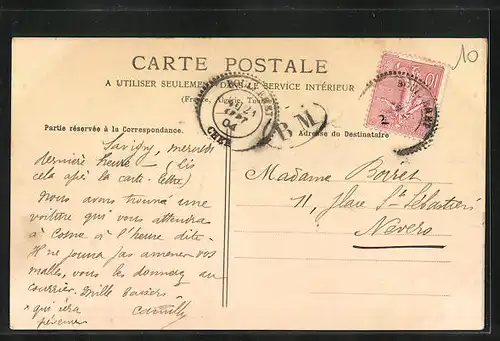 10
CARTE POSTALE
A UTILISER SEULEMENT DANS LE SERVICE INTÉRIEUR
(France, Algérie, Tunisie)
BOULLERET
04
CHER
BM
10
Partie réservée à la Correspondance.
Adresse du Destinataire
Savigny, mercredi
dernière heure - (lis
cela après la carte-lettre)
Nous avons trouvé une
voiture qui vous attendra
à Cosne à l'heure dite.
Il ne pourra pas amener vos
malles, vous les donnerez au
courrier. Mille baisers
qui ira
Camille
Madame Borret
11, place St Sébastien
Nevers